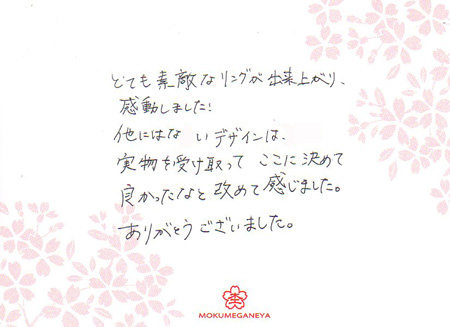 とても素敵なリングが出来上がり、
感動しました!
他にはな いデザインは、
実物を受け取って ここに決めて
良かったなと改めて感じました。
ありがとうございました。
杢
MOKUMEGANEYA